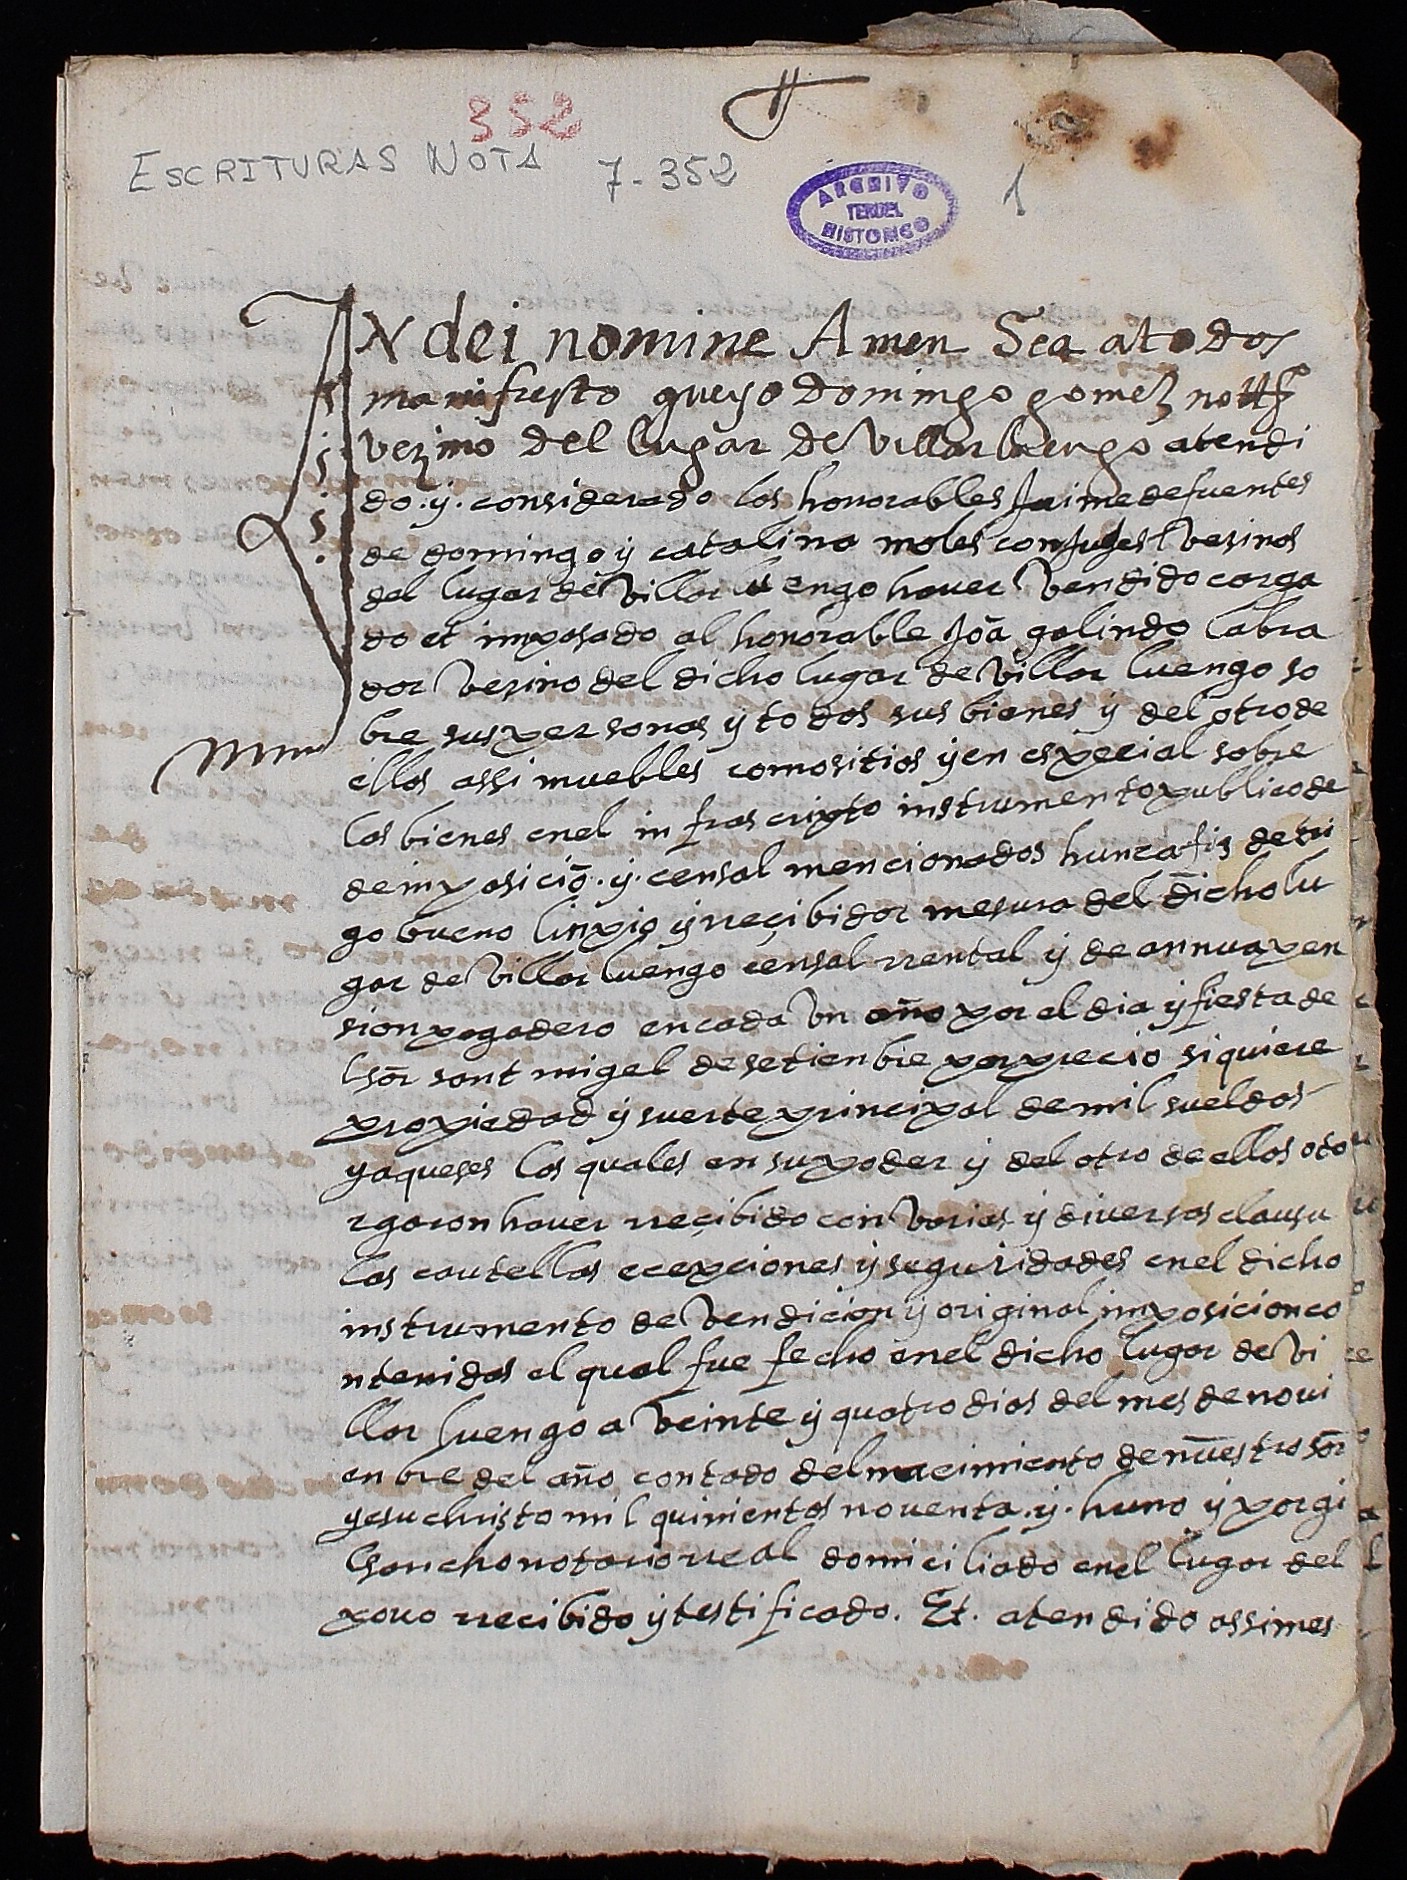 352
ESCRITURAS NOTA 7-352
ARCHIVO
TERUEL
HISTORICO
1
IN dei nomine Amen Sea atodos
manifiesto queyo Domingo gomez nottº
vezino del lugar de Villarluengo atendi
do .y. considerado los honorables Jaime defuentes
de domingo y catalina moles conjuges vezinos
del lugar de Villar luengo haver vendido carga
do et imposado al honorable Joã galindo labra
dor vezino del dicho lugar de Villar luengo so
bre sus personas y todos sus bienes y del otro de
ellos assi muebles como sitios y en especial sobre
los bienes enel infrascripto instrumento publico de
de imposiciõ .y. censal mencionados hun cafiz de tri
go bueno limpio y rreçibidor mesura del dicho lu
gar de Villar luengo çensal rrental y de annua pen
sion pagadero encada un año por el dia y fiesta de
l sõr sant migel de setienbre por precio si quiere
propiedad y suerte principal de mil sueldos
yaqueses los quales en su poder y del otro de ellos oto
rgaron haver rreçibido con varias y diversas clausu
las cautellas ecepciones y seguridades enel dicho
instrumento de vendicion y original imposicion co
ntenidas el qual fue fecho enel dicho lugar de Vi
llar luengo a veinte y quatro dias del mes de novi
enbre del año contado del nacimiento de nuestro sõr
yesu christo mil quinientos noventa .y. huno y por gi
l sancho notario rreal domiciliado enel lugar del
povo rrecibido y testificado. Et. atendido assimes